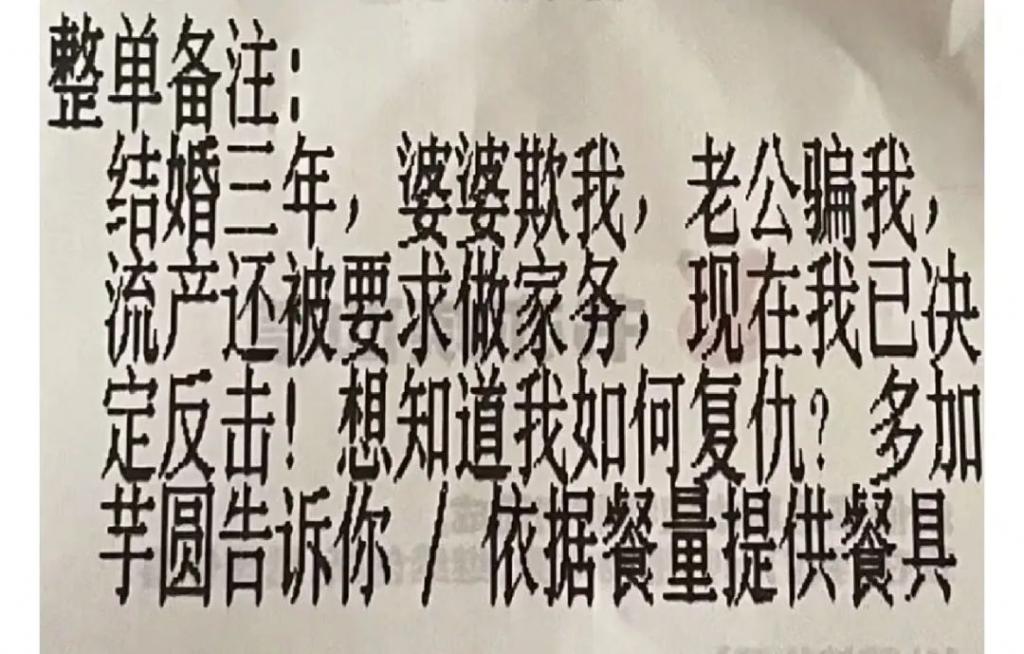 整单备注:
结婚三年，婆婆欺我，老公骗我，
流产还被要求做家务，现在我已决
定反击！想知道我如何复仇？多加
芋圆告诉你 / 依据餐量提供餐具